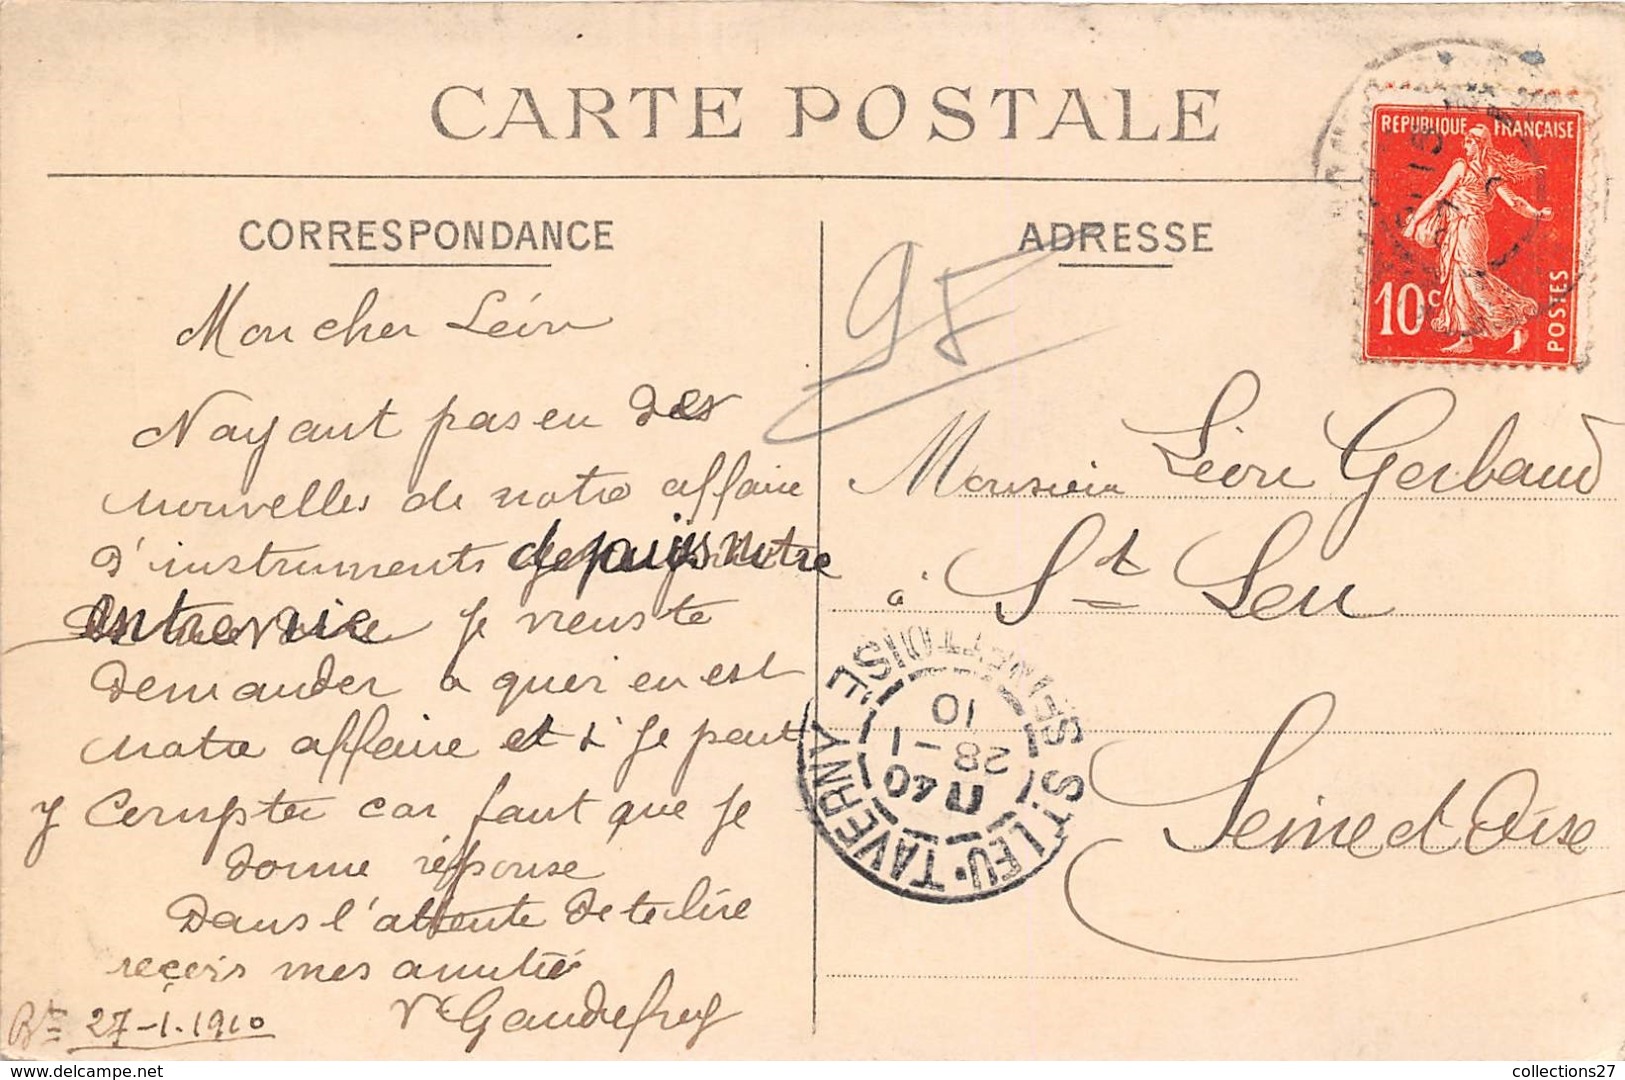 CARTE POSTALE
CORRESPONDANCE
Mon cher Léon
N'ayant pas eu des
nouvelles de notre affaire
d'instruments depuis notre
entrevue je viens te
demander a quoi en est
notre affaire et si je peut
y compter car faut que je
donne réponse
Dans l'attente de te lire
reçois mes amitiés
Vr Gaudefroy
27-1-1910
ADRESSE
95
REPUBLIQUE FRANÇAISE
10c
POSTES
Monsieur Léon Gerbaud
à St Leu
Seine et Oise
ST LEU-TAVERNY
SEINE-ET-OISE
11 40
28-1
10
collections27